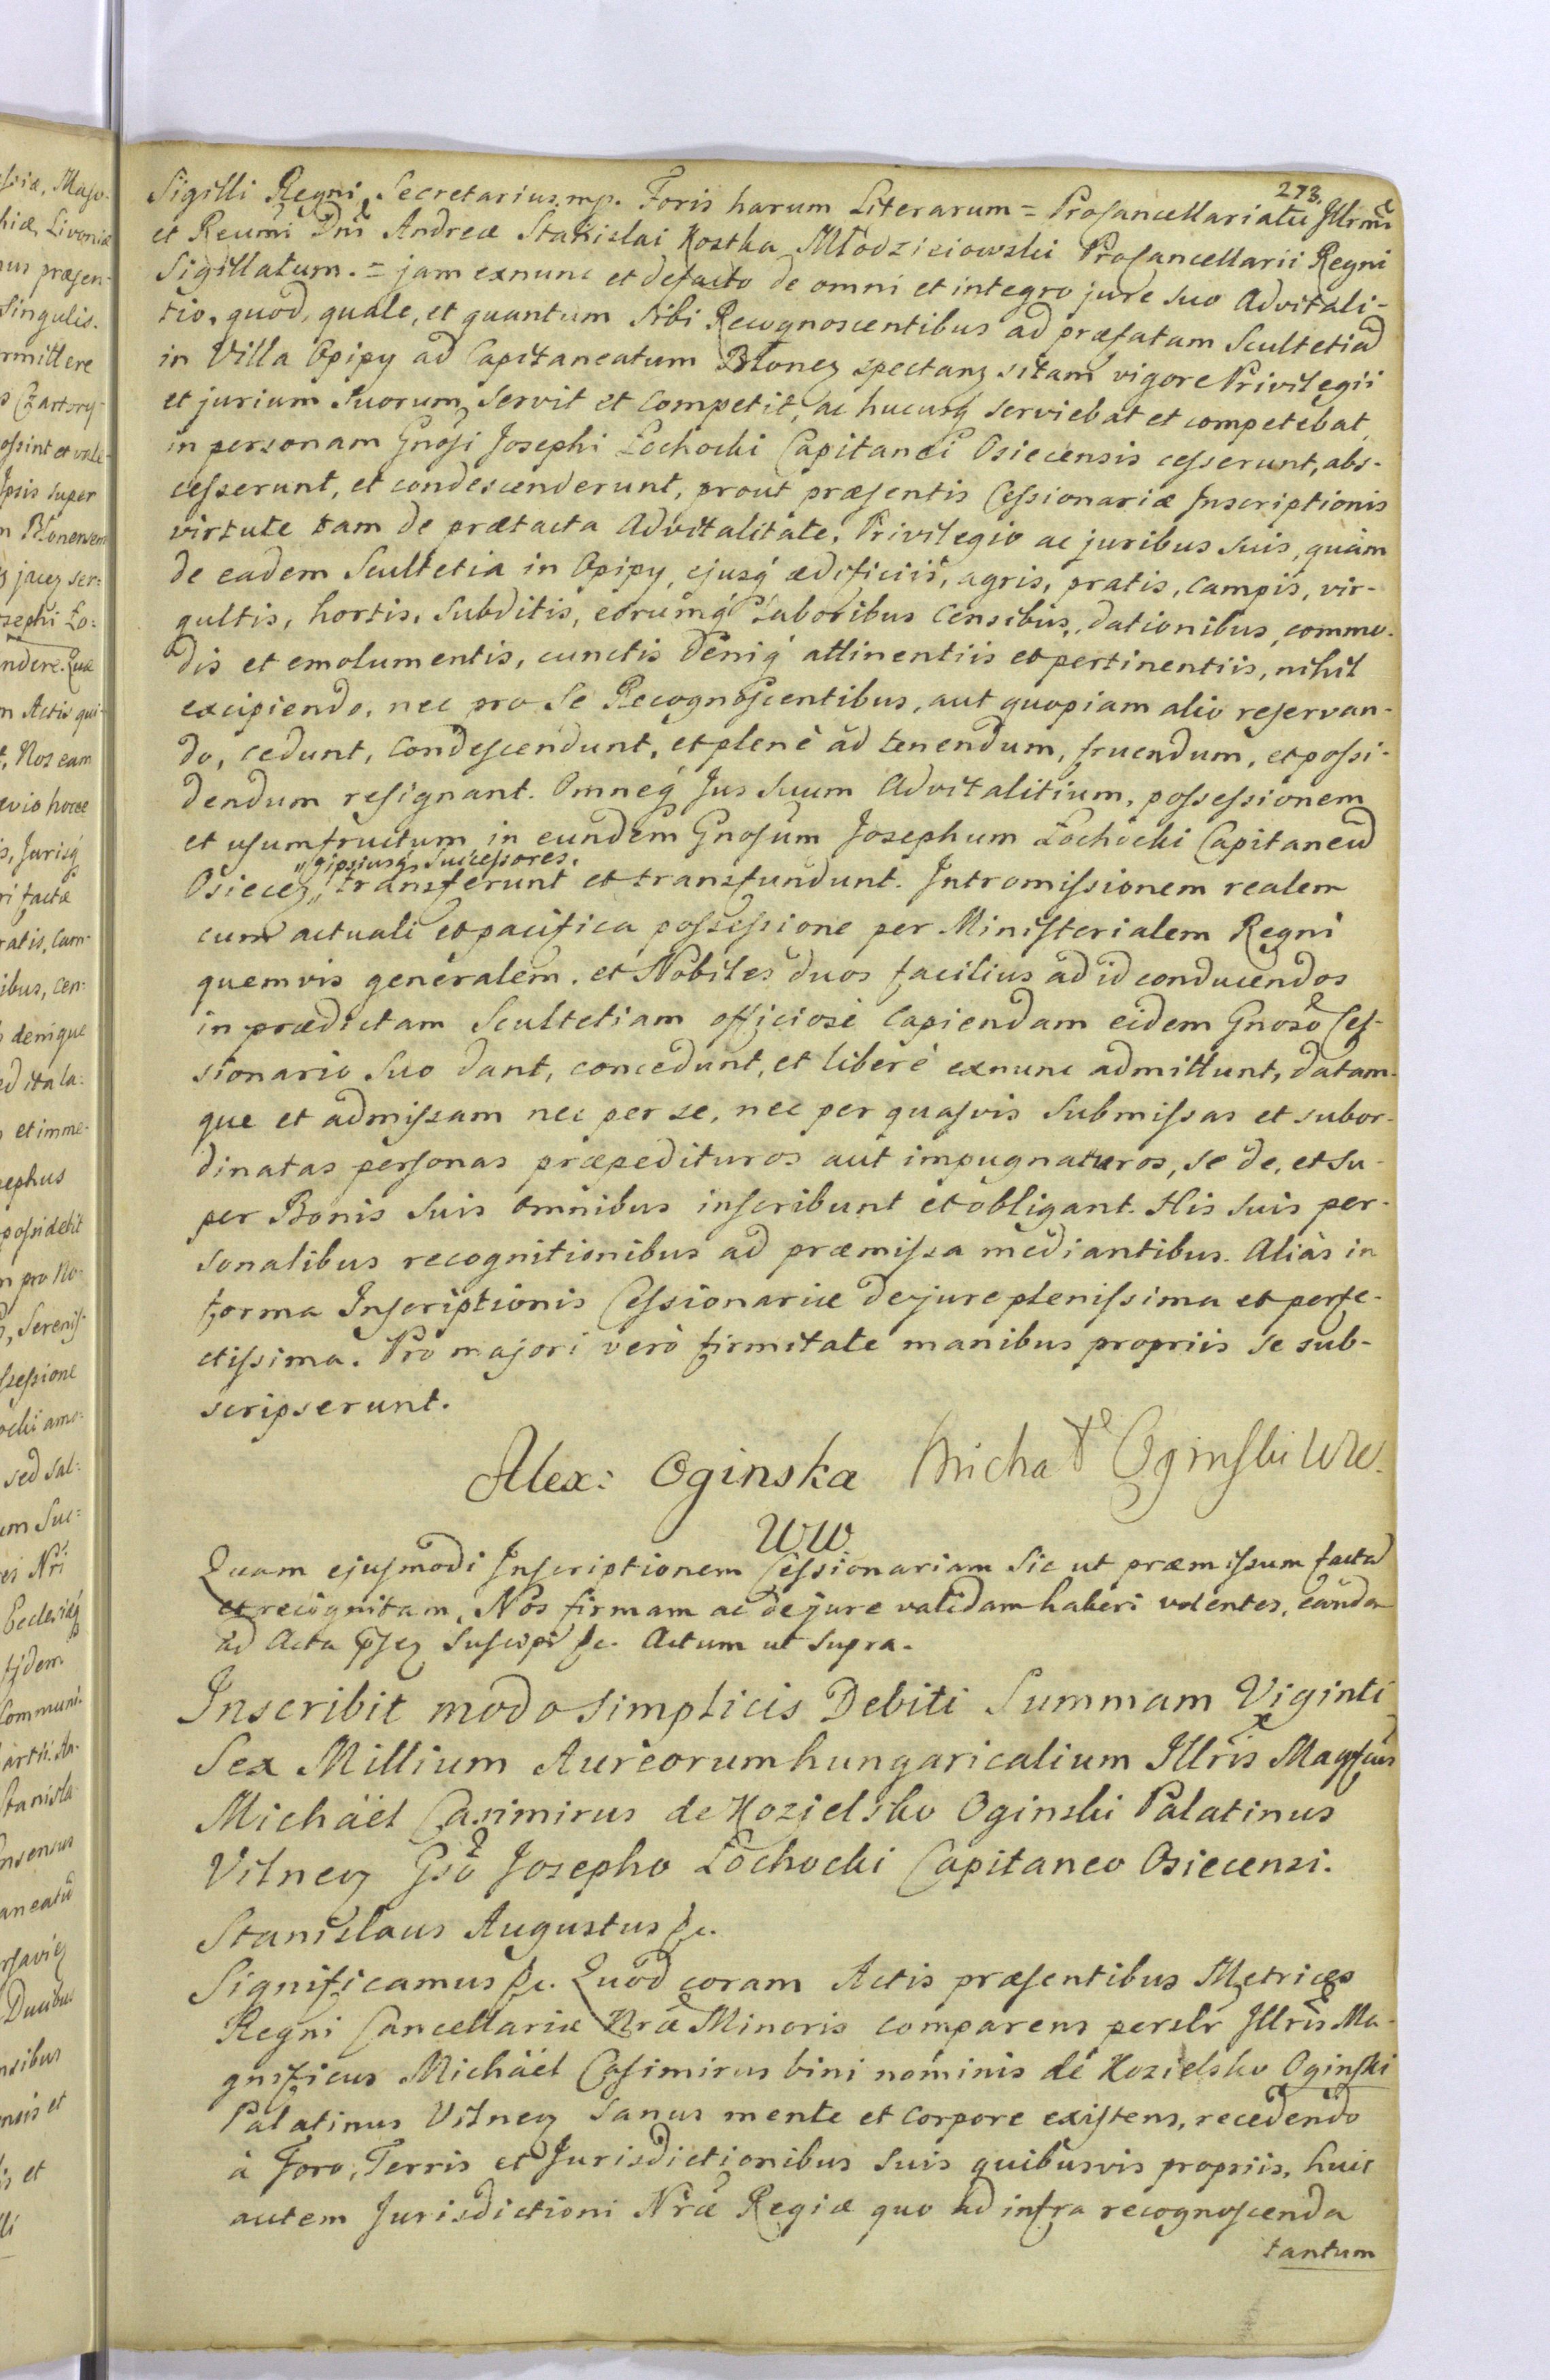 273.
Sigilli Regni, Secretarius mp. Foris harum Literarum = Procancellariatu Jllrmi
et Reumi Dni Andreæ Stanislai Kostka Młodzieiowski Procancellarii Regni
Sigillatum. = jam exnunc et defacto de omni et integro jure suo Advitali-
tio, quod, quale, et quantum sibi Recognoscentibus ad præfatam Scultetiã
in Villa Opipy ad Capitaneatum Błonez spectanz sitam vigore Privilegii
et jurium suorum servit et competit, ac hucusq serviebat et competebat,
in personam Gnosi Josephi Łochocki Capitanei Osiecensis cesserunt, abs-
cesserunt, et condescenderunt, prout præsentis Cessionariæ Inscriptionis
virtute tam de prætacta Advitalitate, Privilegio ac juribus suis, quàm
de eadem Scultetia in Opipy, ejusq ædificiis, agris, pratis, campis, vir-
gultis, hortis, subditis, eorumq laboribus censibus, dationibus, commo-
dis et emolumentis, cunctis deniq attinentiis et pertinentiis, nihil
excipiendo, nec pro se Recognoscentibus, aut quopiam alio reservan-
do, cedunt, condescendunt, et plenè ad tenendum, fruendum, et possi-
dendum resignant. Omneq Jus suum Advitalitium, possessionem
et usumfructum in eundem Gnosum Josephum Łochocki Capitaneũ
"ejpsiusq successores.
Osiecez " transferunt et transfundunt. Intromissionem realem
cum actuali et pacifica possessione per Ministerialem Regni
quemvis generalem, et Nobiles duos facilius ad id conducendos
in prædictam Scultetiam officiosè capiendam eidem Gnoso Ces-
sionario suo dant, concedunt, et liberè exnunc admittunt, datam-
que et admissam nec per se, nec per quasvis submissas et subor-
dinatas personas præpedituros aut impugnaturos, se de, et su-
per Bonis suis omnibus inscribunt et obligant. His suis per-
sonalibus recognitionibus ad præmissa mediantibus. Aliàs in
forma Inscriptionis Cessionariæ de jure plenissima et perfe-
ctissima. Pro majori verò firmitate manibus propriis se sub-
scripserunt.
Alex: Oginska Michał Oginski WW.
WW
Quam ejusmodi Inscriptionem Cessionariam sic ut præmissum factã
et recognitam, Nos firmam ac de jure validam haberi volentes, eandã
ad Acta pñsez suscipi &c. Actum ut supra.
Inscribit modo simplicis Debiti Summam Viginti
Sex Millium Aureorum hungaricalium Jllris Magfcus
Michäel Casimirus de Kozielsko Oginski Palatinus
Vilnenz Gso Josepho Łochocki Capitaneo Osiecensi.
Stanislaus Augustus &c.
Significamus &c. Quod coram Actis præsentibus Metrices
Regni Cancellariæ Nræ Minoris comparens perslr Jllris Ma-
gnificus Michäel Casimirus bini nominis de Kozielsko Oginski
Palatinus Vilnez sanus mente et corpore existens, recedendo
à Foro, Terris et Jurisdictionibus suis quibusvis propriis, huic
autem Jurisdictioni Nræ Regiæ quo ad infra recognoscenda
tantum